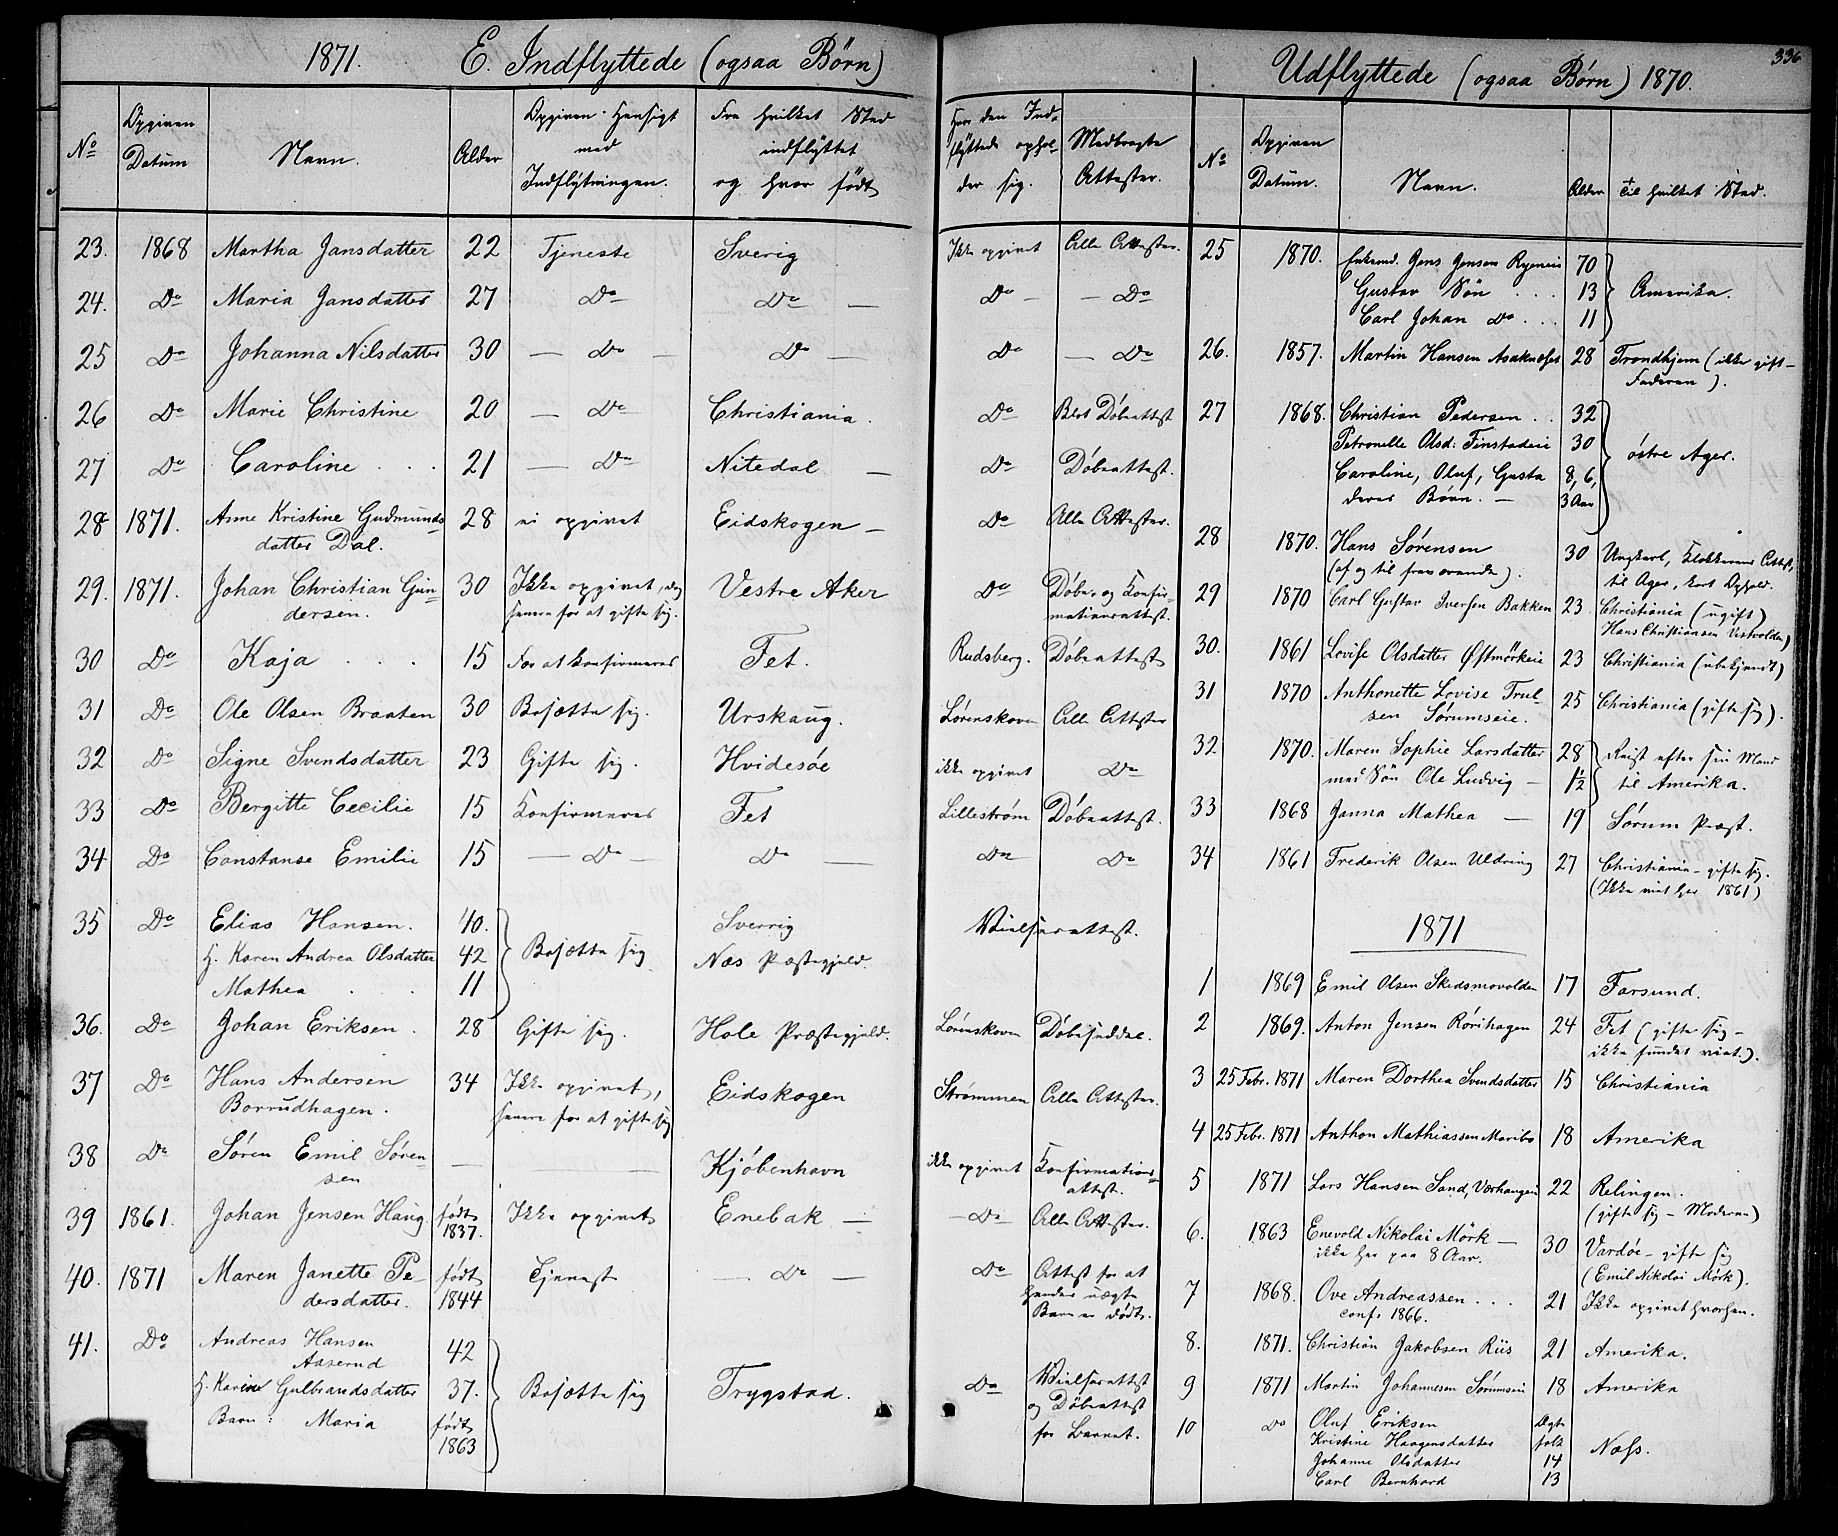 1871. E. Indflyttede (ogsaa Børn)
No Opgiven Datum Navn. Alder Opgiven Hensigt med Indflytningen. Fra hvilket Sted indflyttet og hvor født Hvor den Indflyttede opholder sig. Medbragte Attester.
23. 1868 Martha Jansdatter 22 Tjeneste Sverig Ikke opgivet Alle Attester.
24. Do Maria Jansdatter 27 Do Do — Do — — Do
25 Do Johanna Nilsdatter 30 — Do — Do — Do — Do
26 Do Marie Christine 20 — Do Christiania. Do Blot Døbeattest
27 Do Caroline . . . 21 — Do Nitedal — Do Døbeattest.
28 1871. Anne Kristine Gudmunds- 28 ei opgivet Eidskogen — Do Alle Attester.
datter Dal.
29. 1871. Johan Christian Gun- 30 Ikke opgivet, dog Vestre Aker Do Døbe- og Konfir-
dersen. senere for at gifte sig. mationsattest.
30 Do Kaja . . . 15 For at konfirmeres Fet. Rudsberg. Døbeattest
31 Do Ole Olsen Braaten 30 Bosætte sig. Urskaug. Lørenskoven Alle Attester
32 Do Signe Svendsdatter 23 Gifte sig. Hvidesøe ikke opgivet Do
33 Do Bergitte Cecilie 15 Konfirmeres Fet Lillestrøm Døbeattest.
34 Do Constanse Emilie 15 — Do — Do — Do Do
35 Do Elias Hansen. 40. Sverrig Vielsesattest.
H. Karen Andrea Olsdatter 42 Bosætte sig Næs Præstegjeld.
Mathea . . 11
36. Do Johan Eriksen . 28 Gifte sig. Hole Præstegjeld. Lørenskoven Døbeseddel.
37 Do Hans Andersen 34 Ikke opgivet, Eidskogen Strømmen Alle Attester.
Borrudhagen. senere for at gifte sig
38 Do Søren Emil Søren- — — Kjøbenhavn ikke opgivet Konfirmations-
sen attest.
39 1861. Johan Jensen Haug født Ikke opgivet Enebak — — Do — Alle Attester.
1837.
40. 1871 Maren Janette Pe- født Tjeneste — Do — Do Attest for at
dersdatter. 1844 hendes uægte
Barn er døbt.
41. Do Andreas Hansen 42
Aaserud
H. Karine Gulbrandsdatter 37. Bosætte sig Trygstad. Do Vielsesattest
Barn: Maria født og Døbeattest
1863 for Barnet.
336
Udflyttede (ogsaa Børn) 1870.
No Opgiven Datum. Navn. Alder Til hvilket Sted.
25 1870. Enkemd. Jens Jensen Ryeneie 70
Gustav Søn . . . 13 Amerika.
Carl Johan Do . . 11
26. 1857. Martin Hansen Asaknæset 28 Trondhjem (ikke gift —
Faderen).
27 1868. Christian Pedersen . . 32
Petronelle Olsd: Finstadeie 30 østre Ager.
Caroline, Oluf, Gusta 8, 6,
deres Børn. — 3 Aar
28 1870. Hans Sørensen 30 Ungkarl, Klokkerens Attest,
(af og til fraværende). til Ager, kort Ophold.
29 1870 Carl Gustav Iversen Bakken 23 Christiania (ugift)
Hans Christiansen Vestvolden)
30. 1861 Lovise Olsdatter Østmörkeie 23 Christiania (ubekjendt)
31 1870 Anthonette Lovise Trul- 25 Christiania (gifte sig).
sen Sørumseie.
32 1870. Maren Sophie Larsdatter 28 Reist efter sin Mand
med Søn Ole Ludvig — 1½ til Amerika.
33 1868 Janna Mathea — 19 Sørum Præst.
34 1861 Frederik Olsen Uldring 27 Christiania — gifte sig.
(Ikke vist her 1861)
1871
1 1869 Emil Olsen Skedsmovolden 17 Farsund.
2 1869. Anton Jensen Rørihagen 24 Fet (gifte sig —
ikke fundet viet.).
3 25 Febr. 1871 Maren Dorthea Svendsdatter 15 Christiania
4 25 Febr. 1871 Anthon Mathiassen Maribo 18 Amerika
5 1871 Lars Hansen Sand, Værhangen 22 Relingen.
(gifte sig — Moderen)
6. 1863 Enevold Nikolai Mörk — 30 Vardøe — gifte sig
ikke her paa 8 Aar. (Emil Nikolai Mörk).
7 1868. Ove Andreassen . . . 21 Ikke opgivet hvorhen.
conf. 1866.
8. 1871. Christian Jakobsen Riis 21 Amerika.
9 1871 Martin Johannesen Sørumseie 18 Amerika
10 Do Oluf Eriksen Ægte
Kristine Haagensdatter folk Næss.
Johanne Olsdatter 14
Carl Bernhard 13